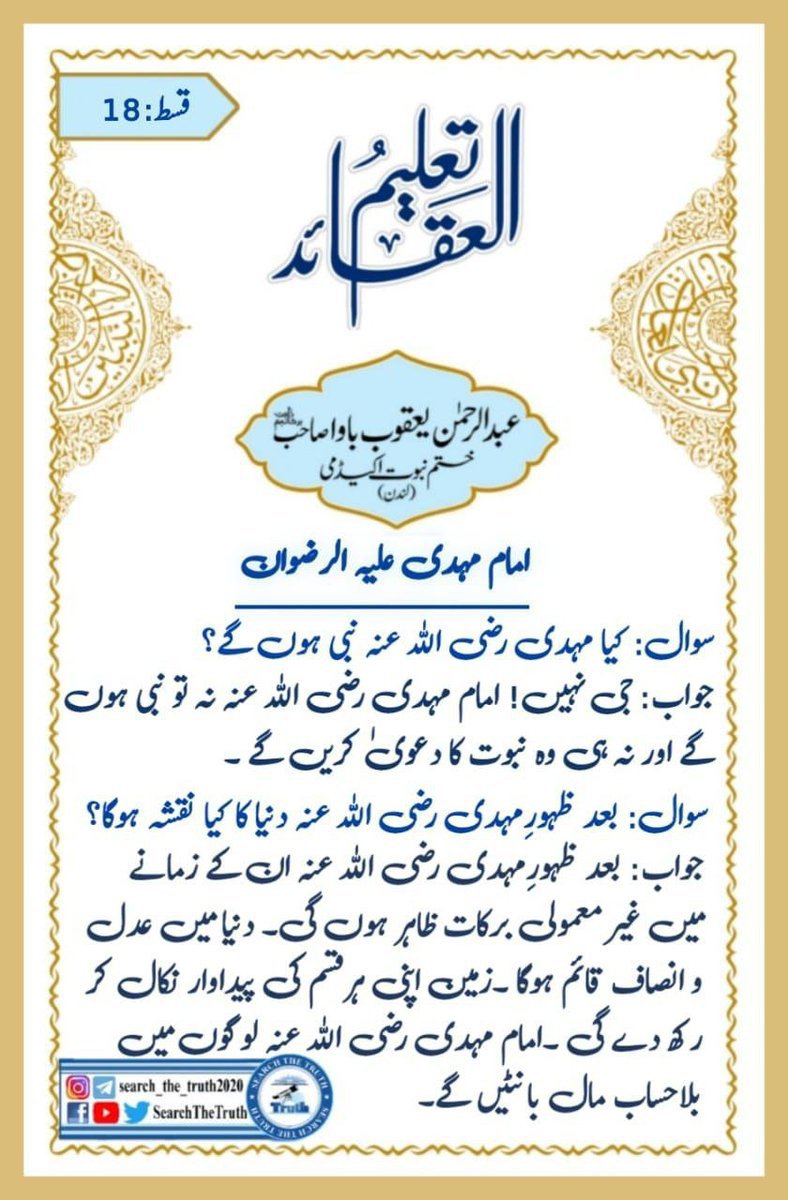 قسط:18
تعلیمُ
العقائد
عبدالرحمٰن یعقوب باوا صاحب
ختم نبوت اکیڈمی
(لندن)
امام مہدی علیہ الرضوان
سوال: کیا مہدی رضی اللہ عنہ نبی ہوں گے؟
جواب: جی نہیں! امام مہدی رضی اللہ عنہ نہ تو نبی ہوں
گے اور نہ ہی وہ نبوت کا دعویٰ کریں گے ۔
سوال: بعد ظہورِمہدی رضی اللہ عنہ دنیا کا کیا نقشہ ہوگا؟
جواب: بعد ظہورِمہدی رضی اللہ عنہ ان کے زمانے
میں غیر معمولی برکات ظاہر ہوں گی۔ دنیا میں عدل
و انصاف قائم ہوگا ۔زمین اپنی ہر قسم کی پیداوار نکال کر
رکھ دے گی ۔امام مہدی رضی اللہ عنہ لوگوں میں
بلاحساب مال بانٹیں گے۔
search_the_truth2020
SearchTheTruth
SEARCH THE TRUTH
Truth
SEARCH THE TRUTH